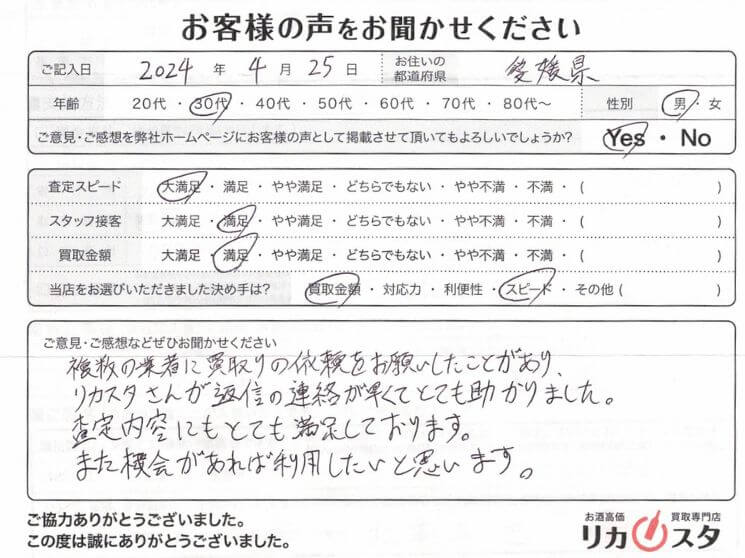 お客様の声をお聞かせください
ご記入日 2024 年 4 月 25 日 お住いの都道府県 愛媛県
年齢 20代 ・ 30代 ・ 40代 ・ 50代 ・ 60代 ・ 70代 ・ 80代～ 性別 男 ・ 女
ご意見・ご感想を弊社ホームページにお客様の声として掲載させて頂いてもよろしいでしょうか? Yes ・ No
査定スピード 大満足 ・ 満足 ・ やや満足 ・ どちらでもない ・ やや不満 ・ 不満 ・ ( )
スタッフ接客 大満足 ・ 満足 ・ やや満足 ・ どちらでもない ・ やや不満 ・ 不満 ・ ( )
買取金額 大満足 ・ 満足 ・ やや満足 ・ どちらでもない ・ やや不満 ・ 不満 ・ ( )
当店をお選びいただきました決め手は? 買取金額 ・ 対応力 ・ 利便性 ・ スピード ・ その他 ( )
ご意見・ご感想などぜひお聞かせください
複数の業者に買取りの依頼をお願いしたことがあり、
リカスタさんが返信の連絡が早くてとても助かりました。
査定内容にもとても満足しております。
また機会があれば利用したいと思います。
ご協力ありがとうございました。
この度は誠にありがとうございました。
お酒高価 買取専門店
リカスタ